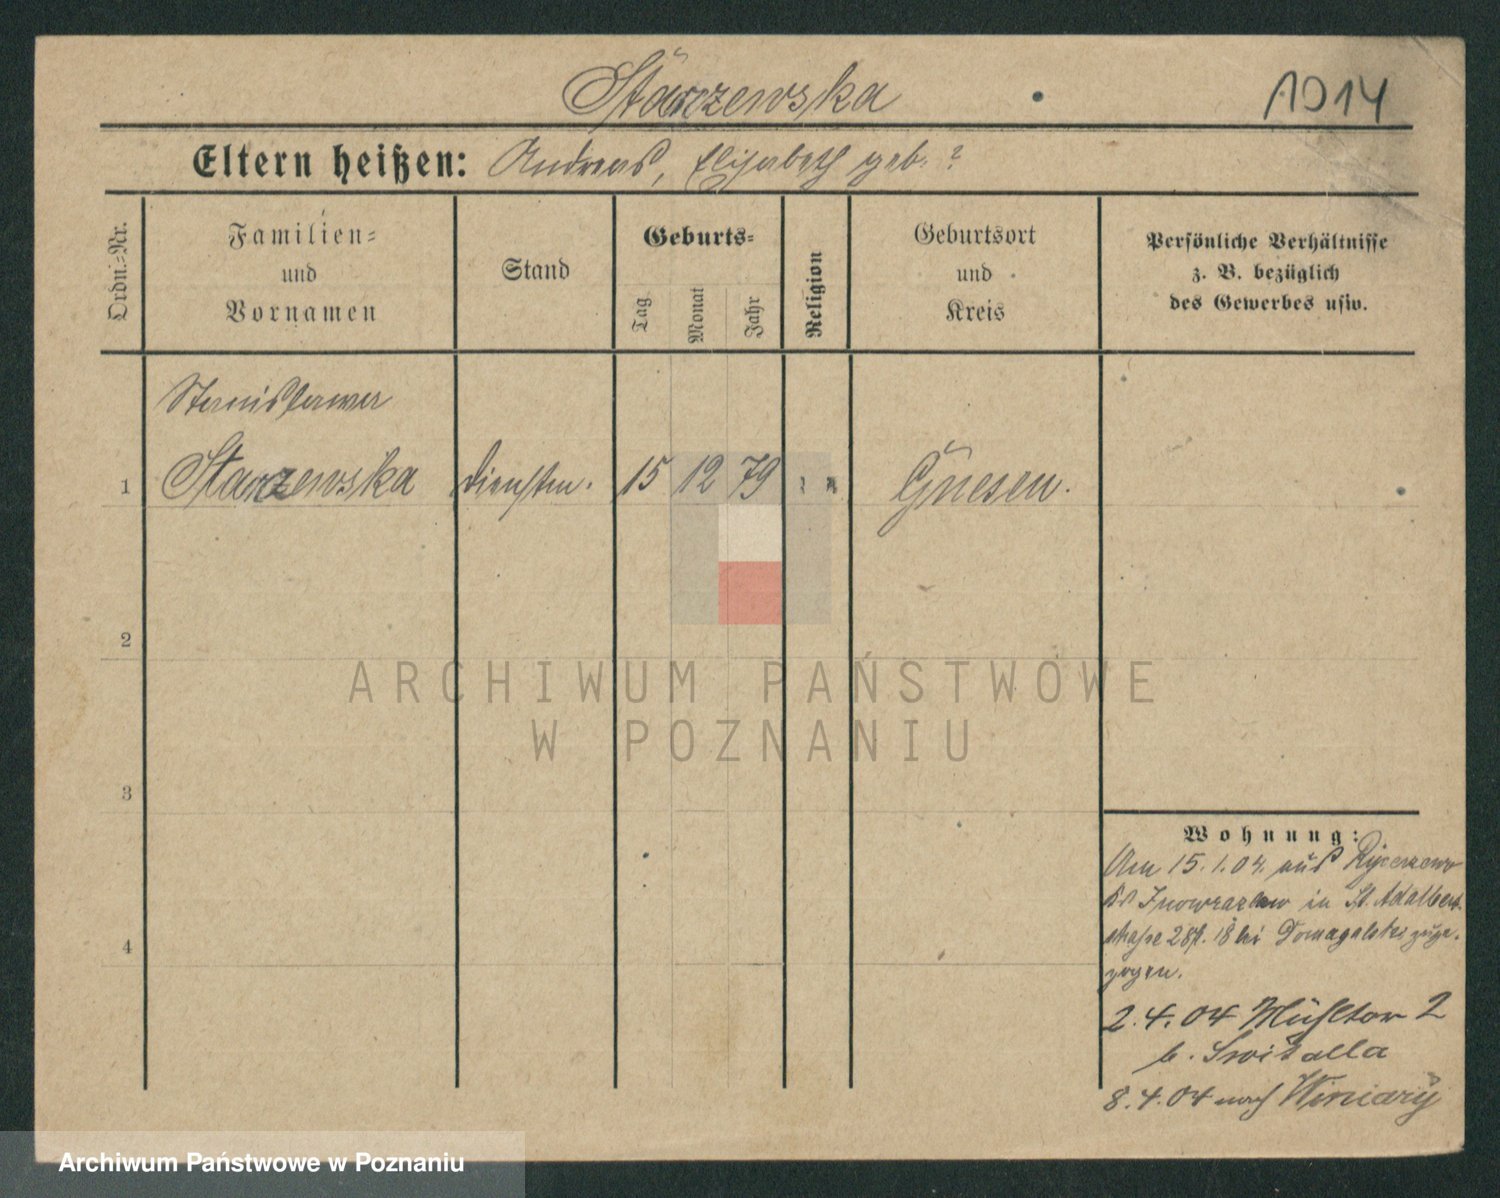 Starzewska
1014
Eltern heißen: Andreas, Elisabeth geb. ?
Ordn.-Nr.
Familien- und Vornamen
Stand
Geburts-
Tag
Monat
Jahr
Religion
Geburtsort und Kreis
Persönliche Verhältnisse z. B. bezüglich des Gewerbes usw.
Stanislawa
1 Starzewska Dienstm. 15 12 79 Gnesen.
2
ARCHIWUM PAŃSTWOWE
W POZNANIU
3
Wohnung:
Am 15.1.04 aus
Inowrazlaw in St. Adalbert-
straße 28 bei zuge-
zogen.
4
2.4.04 Mühltor 2
b. Switalla
8.4.04 nach Winiary
Archiwum Państwowe w Poznaniu